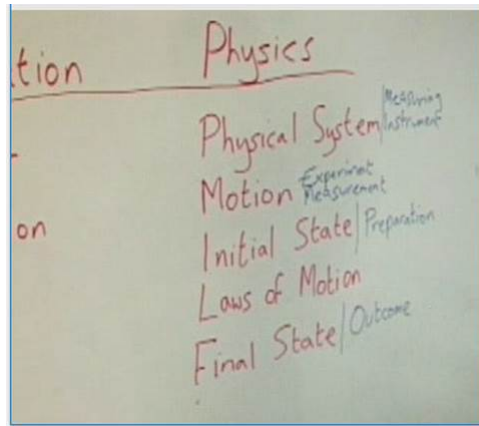 tion Physics
Physical System | Measuring Instrument
Motion Experiment Measurement
on
Initial State | Preparation
Laws of Motion
Final State | Outcome